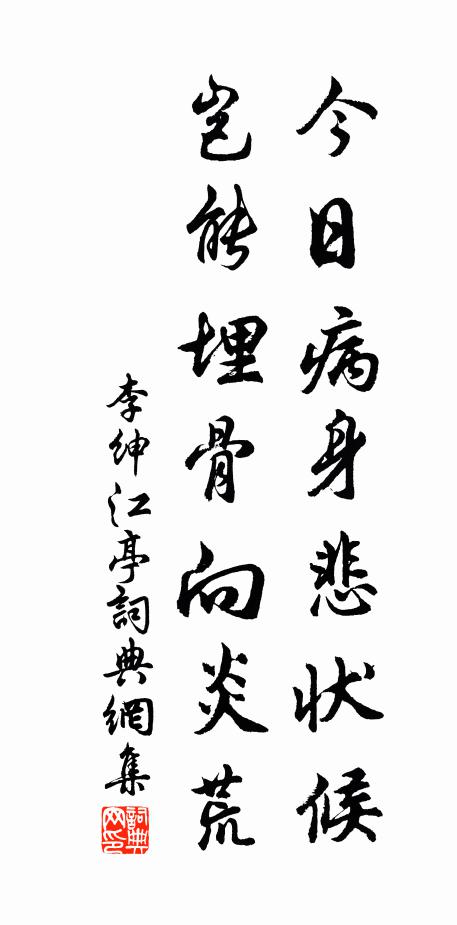 今日病身悲状候
岂能埋骨向炎荒
李绅江亭詞典網集
詞典网印